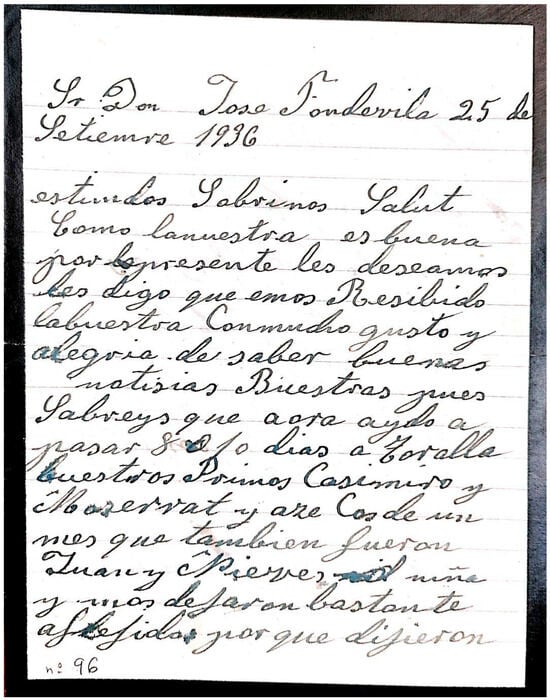 Sr. Don Jose Fondevila 25 de
Setiemre 1936
estimdos Sobrinos Salut
Como lanuestra es buena
por lepresente les deseamos
les digo que emos Resibido
labuestra Conmucho gusto y
alegria de saber buenas
notisias Buestras pues
Sabreys que aora aydo a
pasar 8 o 10 dias a Toralla
buestros Primos Casimiro y
Mozerrat y aze Cosde un
mes que tambien fueron
Juan y Nieves niña
y mos dejaron bastante
aflejidos por que dijieron
nº 96